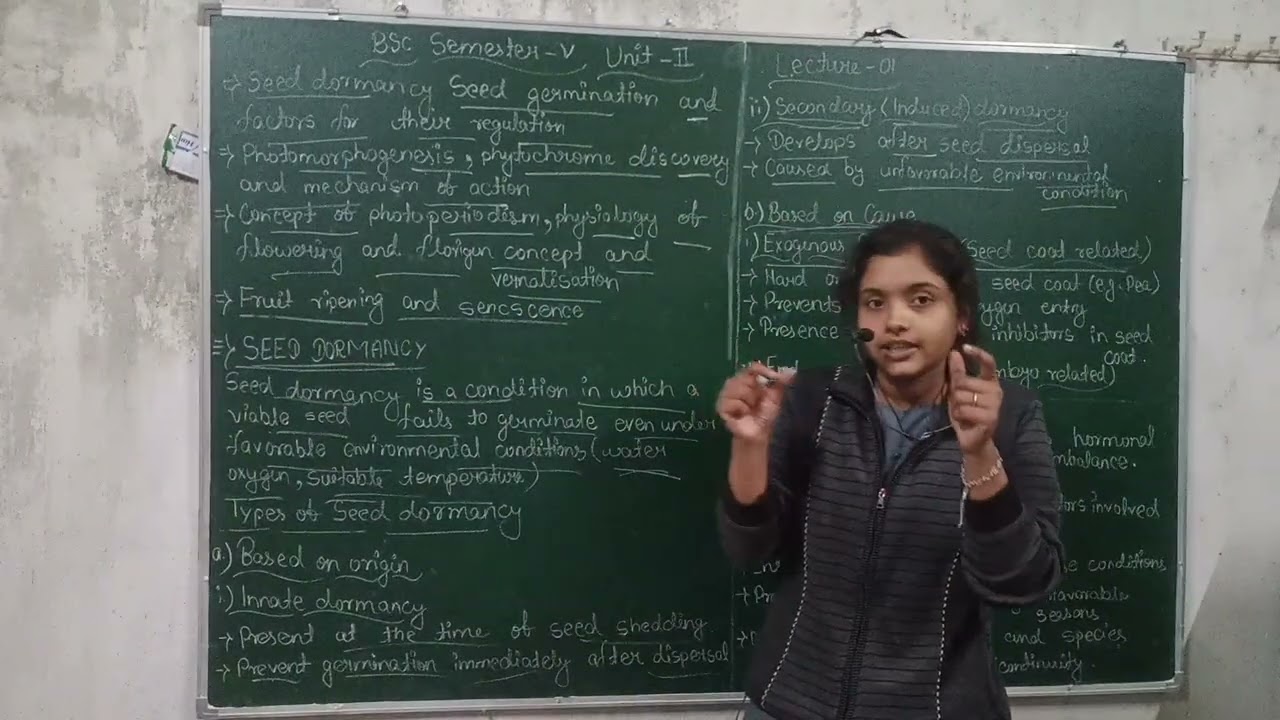 BSc Semester-V Unit-II
→ Seed dormancy Seed germination and
factors for their regulation
→ Photomorphogenesis, phytochrome discovery
and mechanism of action
→ Concept of photoperiodism, physiology of
flowering and florigen concept and
vernalisation
→ Fruit ripening and sencscence
⇒ SEED DORMANCY
Seed dormancy is a condition in which a
viable seed fails to germinate even under
favorable environmental conditions (water
oxygen, suitable temperature)
Types of Seed dormancy
a.) Based on origin
i) Innate dormancy
→ Present at the time of seed shedding
→ Prevent germination immediately after dispersal
Lecture-01
ii) Secondary (Induced) dormancy
→ Develops after seed dispersal
→ Caused by unfavorable environmental
condition
b) Based on Cause
i) Exogenous (Seed coat related)
→ Hard seed coat (eg. Pea)
→ Prevents entry
→ Presence inhibitors in seed
coat.
related)
hormonal
imbalance.
involved
conditions
seasons
and species
continuity.